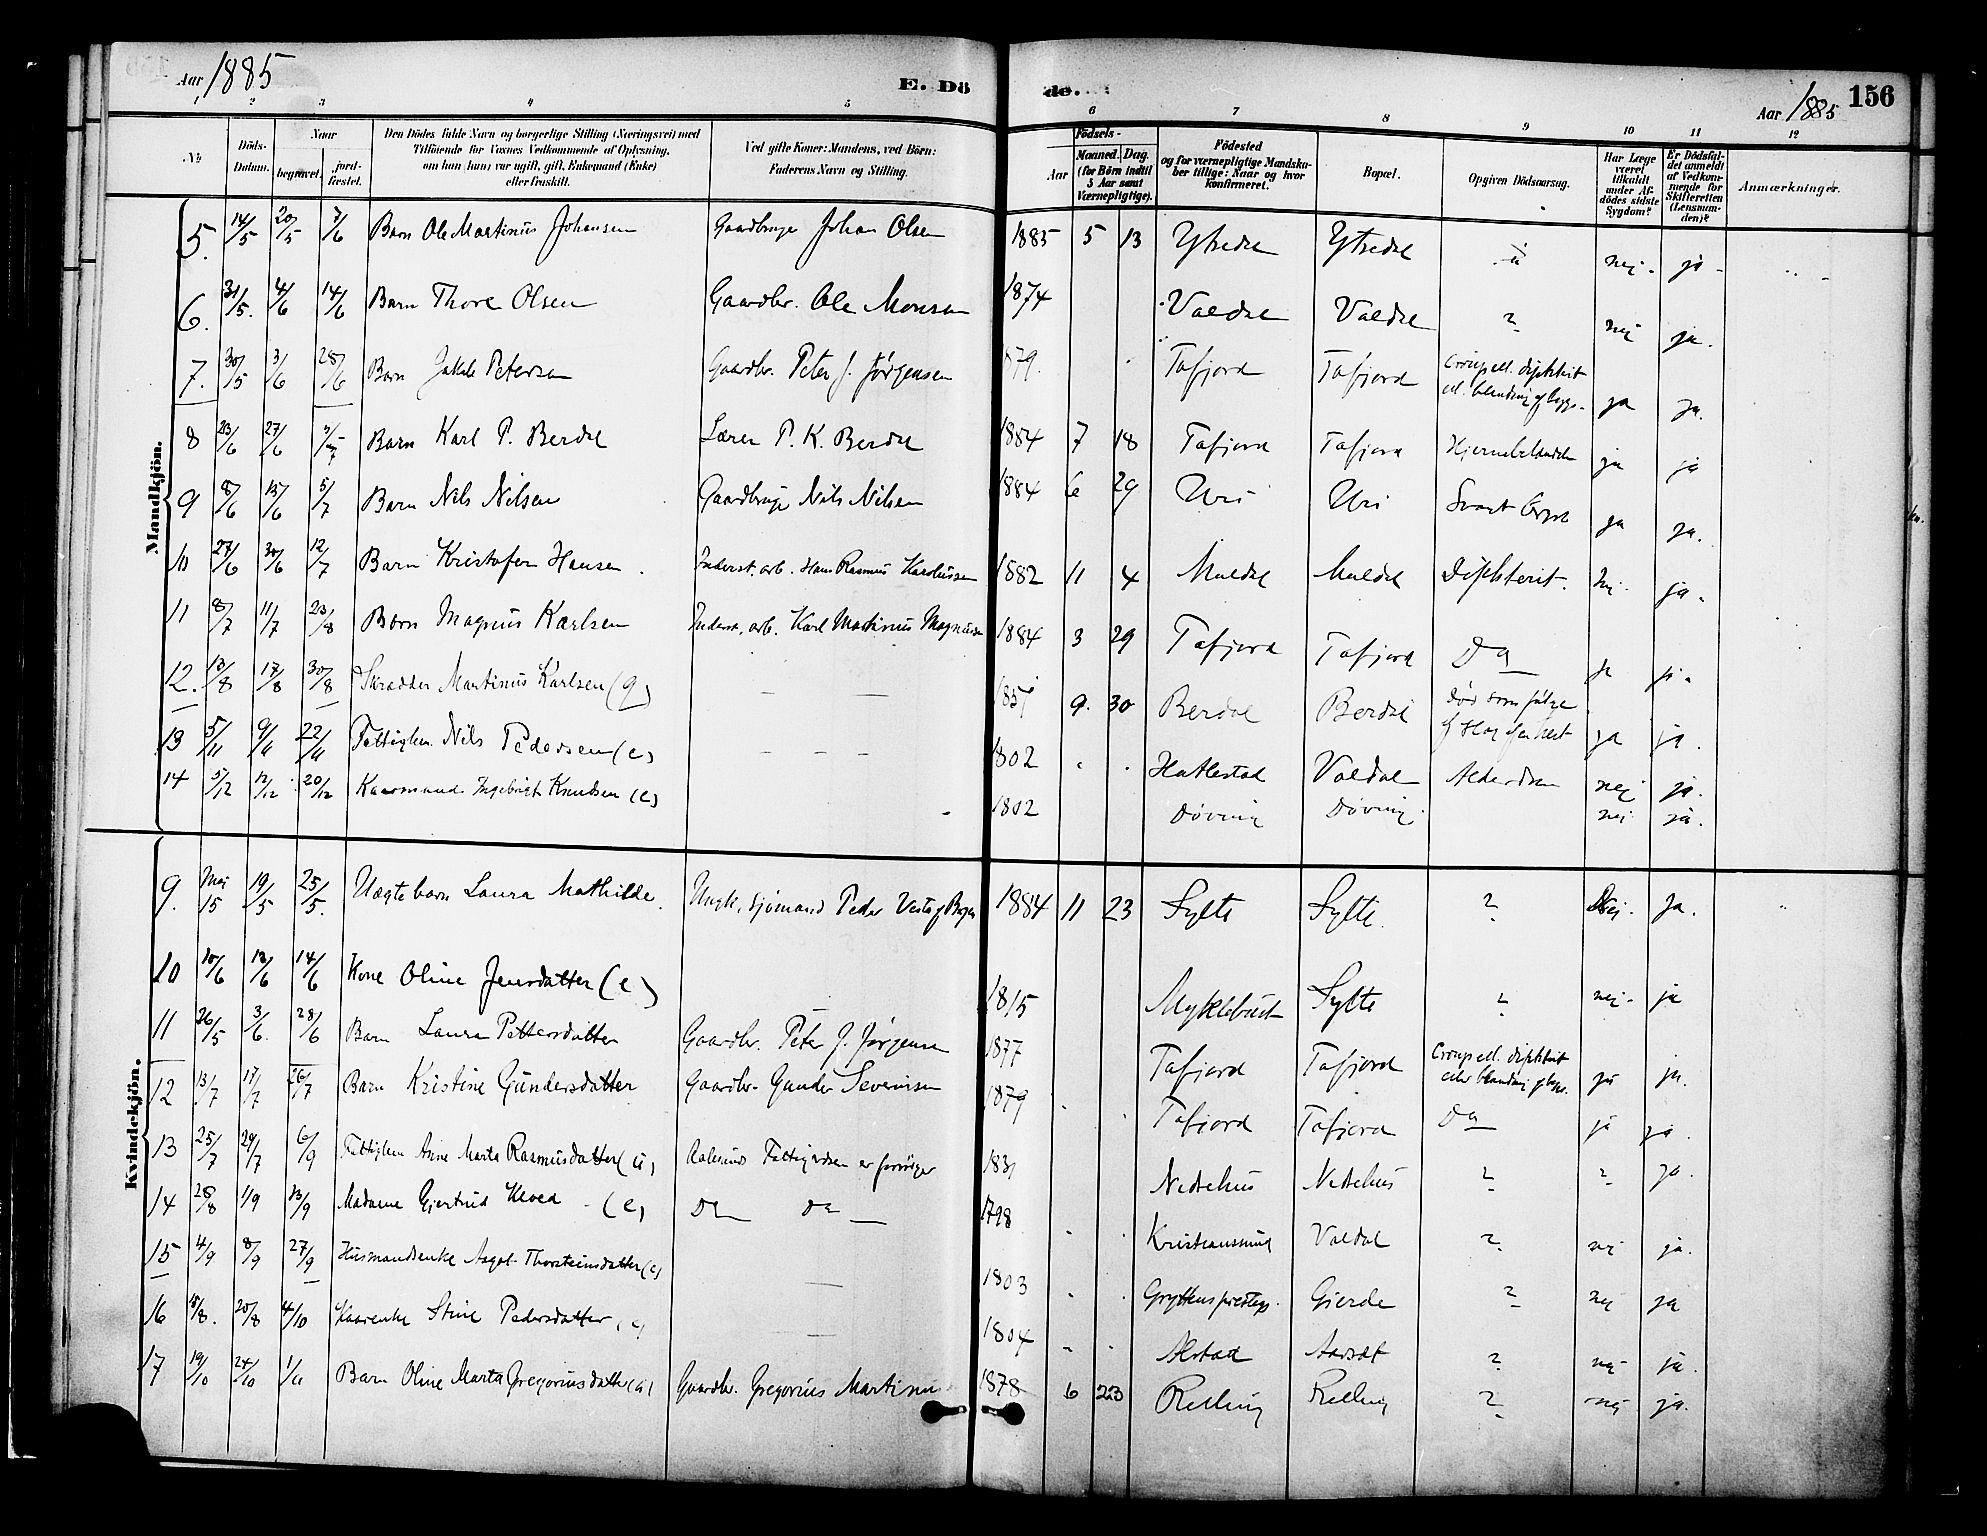 Aar 1885
E. Dö de.
Aar 1885
156
1 2 3 4 5 6 7 8 9 10 11 12
No.
Döds-Datum.
Naar
begravet.
jord-fæstet.
Den Dödes fulde Navn og borgerlige Stilling (Næringsvei) med
Tilföiende for Voxnes Vedkommende af Oplysning,
om han (hun) var ugift, gift, Enkemand (Enke)
eller fraskilt.
Ved gifte Koner: Mandens, ved Börn:
Faderens Navn og Stilling.
Födsels-
Aar
Maaned. Dag.
(for Börn indtil
5 Aar samt
Værnepligtige).
Födested
og for værnepligtige Mandska-
ber tillige: Naar og hvor
konfirmeret.
Bopæl.
Opgiven Dödsaarsag.
Har Læge
været
tilkaldt
under Af-
dödes sidste
Sygdom?
Er Dödsfal-
det anmeldt
af Vedkom-
mende for
Skifteretten
(Lensman-
den)?
Anmærkninger.
Mandkjön.
5. 14/5 20/5 7/6 Barn Ole Martinus Johansen Gaardbruger Johan Olsen 1885 5 13 Ytredal Ytredal nej - ja -
6. 31/5. 4/6 14/6 Barn Thore Olsen Gaardbr. Ole Monsen 1874 Valdal Valdal ? nej ja.
7. 30/5 3/6 28/6 Barn Jakob Petersen Gaardbr. Peter J. Jørgensen 1879. Tafjord Tafjord Croup ell. difterit ell. blanding af begge - ja ja.
8 23/6 27/6 Barn Karl P. Berdal Lærer P. K. Berdal 1884 7 18 Tafjord Tafjord ja ja
9 8/6 15/6 5/7 Barn Nils Nilsen Gaardbruger Nils Nilsen 1884 6 29 Uri Uri ja ja.
10 27/6 30/6 12/7 Barn Kristofer Hansen. Inderst. arb. Hans Rasmus 1882 11 4 Muldal Muldal Difterit. nej. ja.
11 8/7 11/7 23/8 Barn Magnus Karlsen Inderst. arb. Karl Martinus Magnussen 1884 3 29 Tafjord Tafjord Do ja ja.
12. 13/8 17/8 30/8 Skrædder Martinus Karlsen (g) — — 1857 9. 30 Berdal Berdal Død som følge af Slag af en hest ja ja.
13 5/11 9/11 22/11 Fattiglem Nils Pedersen (e) — — — 1802 Hatlestad Valdal Alderdom nej ja.
14 5/12 12/12 20/12 Kaarmand Ingebrigt Knudsen (e) 1802 Døving Døving nej ja.
Kvindekjön.
9. Mai 15 19/5 25/5. Uægte barn Laura Mathilde. Ungk. sjømand Peder 1884 11 23 Sylte Sylte. ? Nej. ja.
10 10/6 13/6 14/6 Kone Oline Jensdatter (e) 1815 Myklebust Sylte ? nej - ja
11 26/5 3/6. 28/6 Barn Laura Pettersdatter Gaardbr. Peter J. Jørgensen 1877 Tafjord Tafjord Croup ell. difterit eller blanding af begge. ja ja.
12 13/7 17/7 26/7 Barn Kristine Gundersdatter Gaardbr. Gunder Severinsen 1879 Tafjord Tafjord Do ja ja.
13 25/7 29/7 6/9 Fattiglem Anne Marta Rasmusdatter (u) Aalesund Fattigvæsen er forsørger 1831 Nedrehus Nedrehus ? ? ja.
14 28/8 1/9 13/9 Madame Gjertrud (e) Do Do — 1798 Kristianssund Valdal ? nej ja.
15 4/9 8/9 27/9 Husmandsenke Thorsteinsdatter (e) — 1803 Gryttens prestegj. Gjerde ? nej ja
16 15/8. 20/8 4/10 Kaarenke Stine Pedersdatter (e) — 1804 Alstad ? nej ja.
17 19/10 24/10 1/11 Barn Oline Marta Gregoriusdatter (u) Gaardbr. Gregorius Martinus 1878 6 23 Relling Relling ? nej ja.